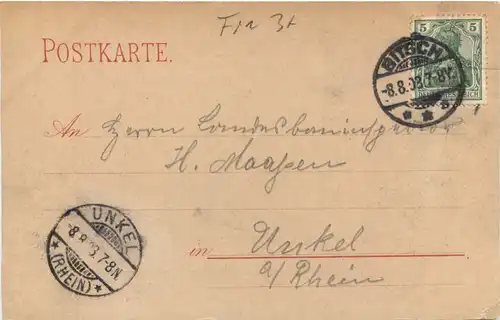 Fra 3t
POSTKARTE.
5 5
BITSCH
8.8.03.7-8V.
An Herrn Landesbauinspector
H. Maassen
UNKEL
8.8.03.7-8N
(RHEIN)
in Unkel
a/Rhein